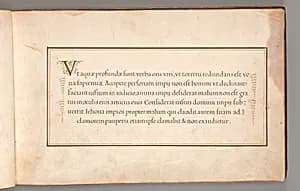 Vt aquæ profundæ sunt verba oris viri, et torrens redundans est ve
na sapientiæ. Accipere personam impij non est bonum, vt declinare
faciant iustum in iudicio, anima impij desiderat malum non est gra
tus in oculis eius amicus eius Considerat iustus domum impij sub:
uertit Iehoua impios propter malum qui claudit aurem suam ad
clamorem pauperis etiam ipse clamabit & non exaudietur.